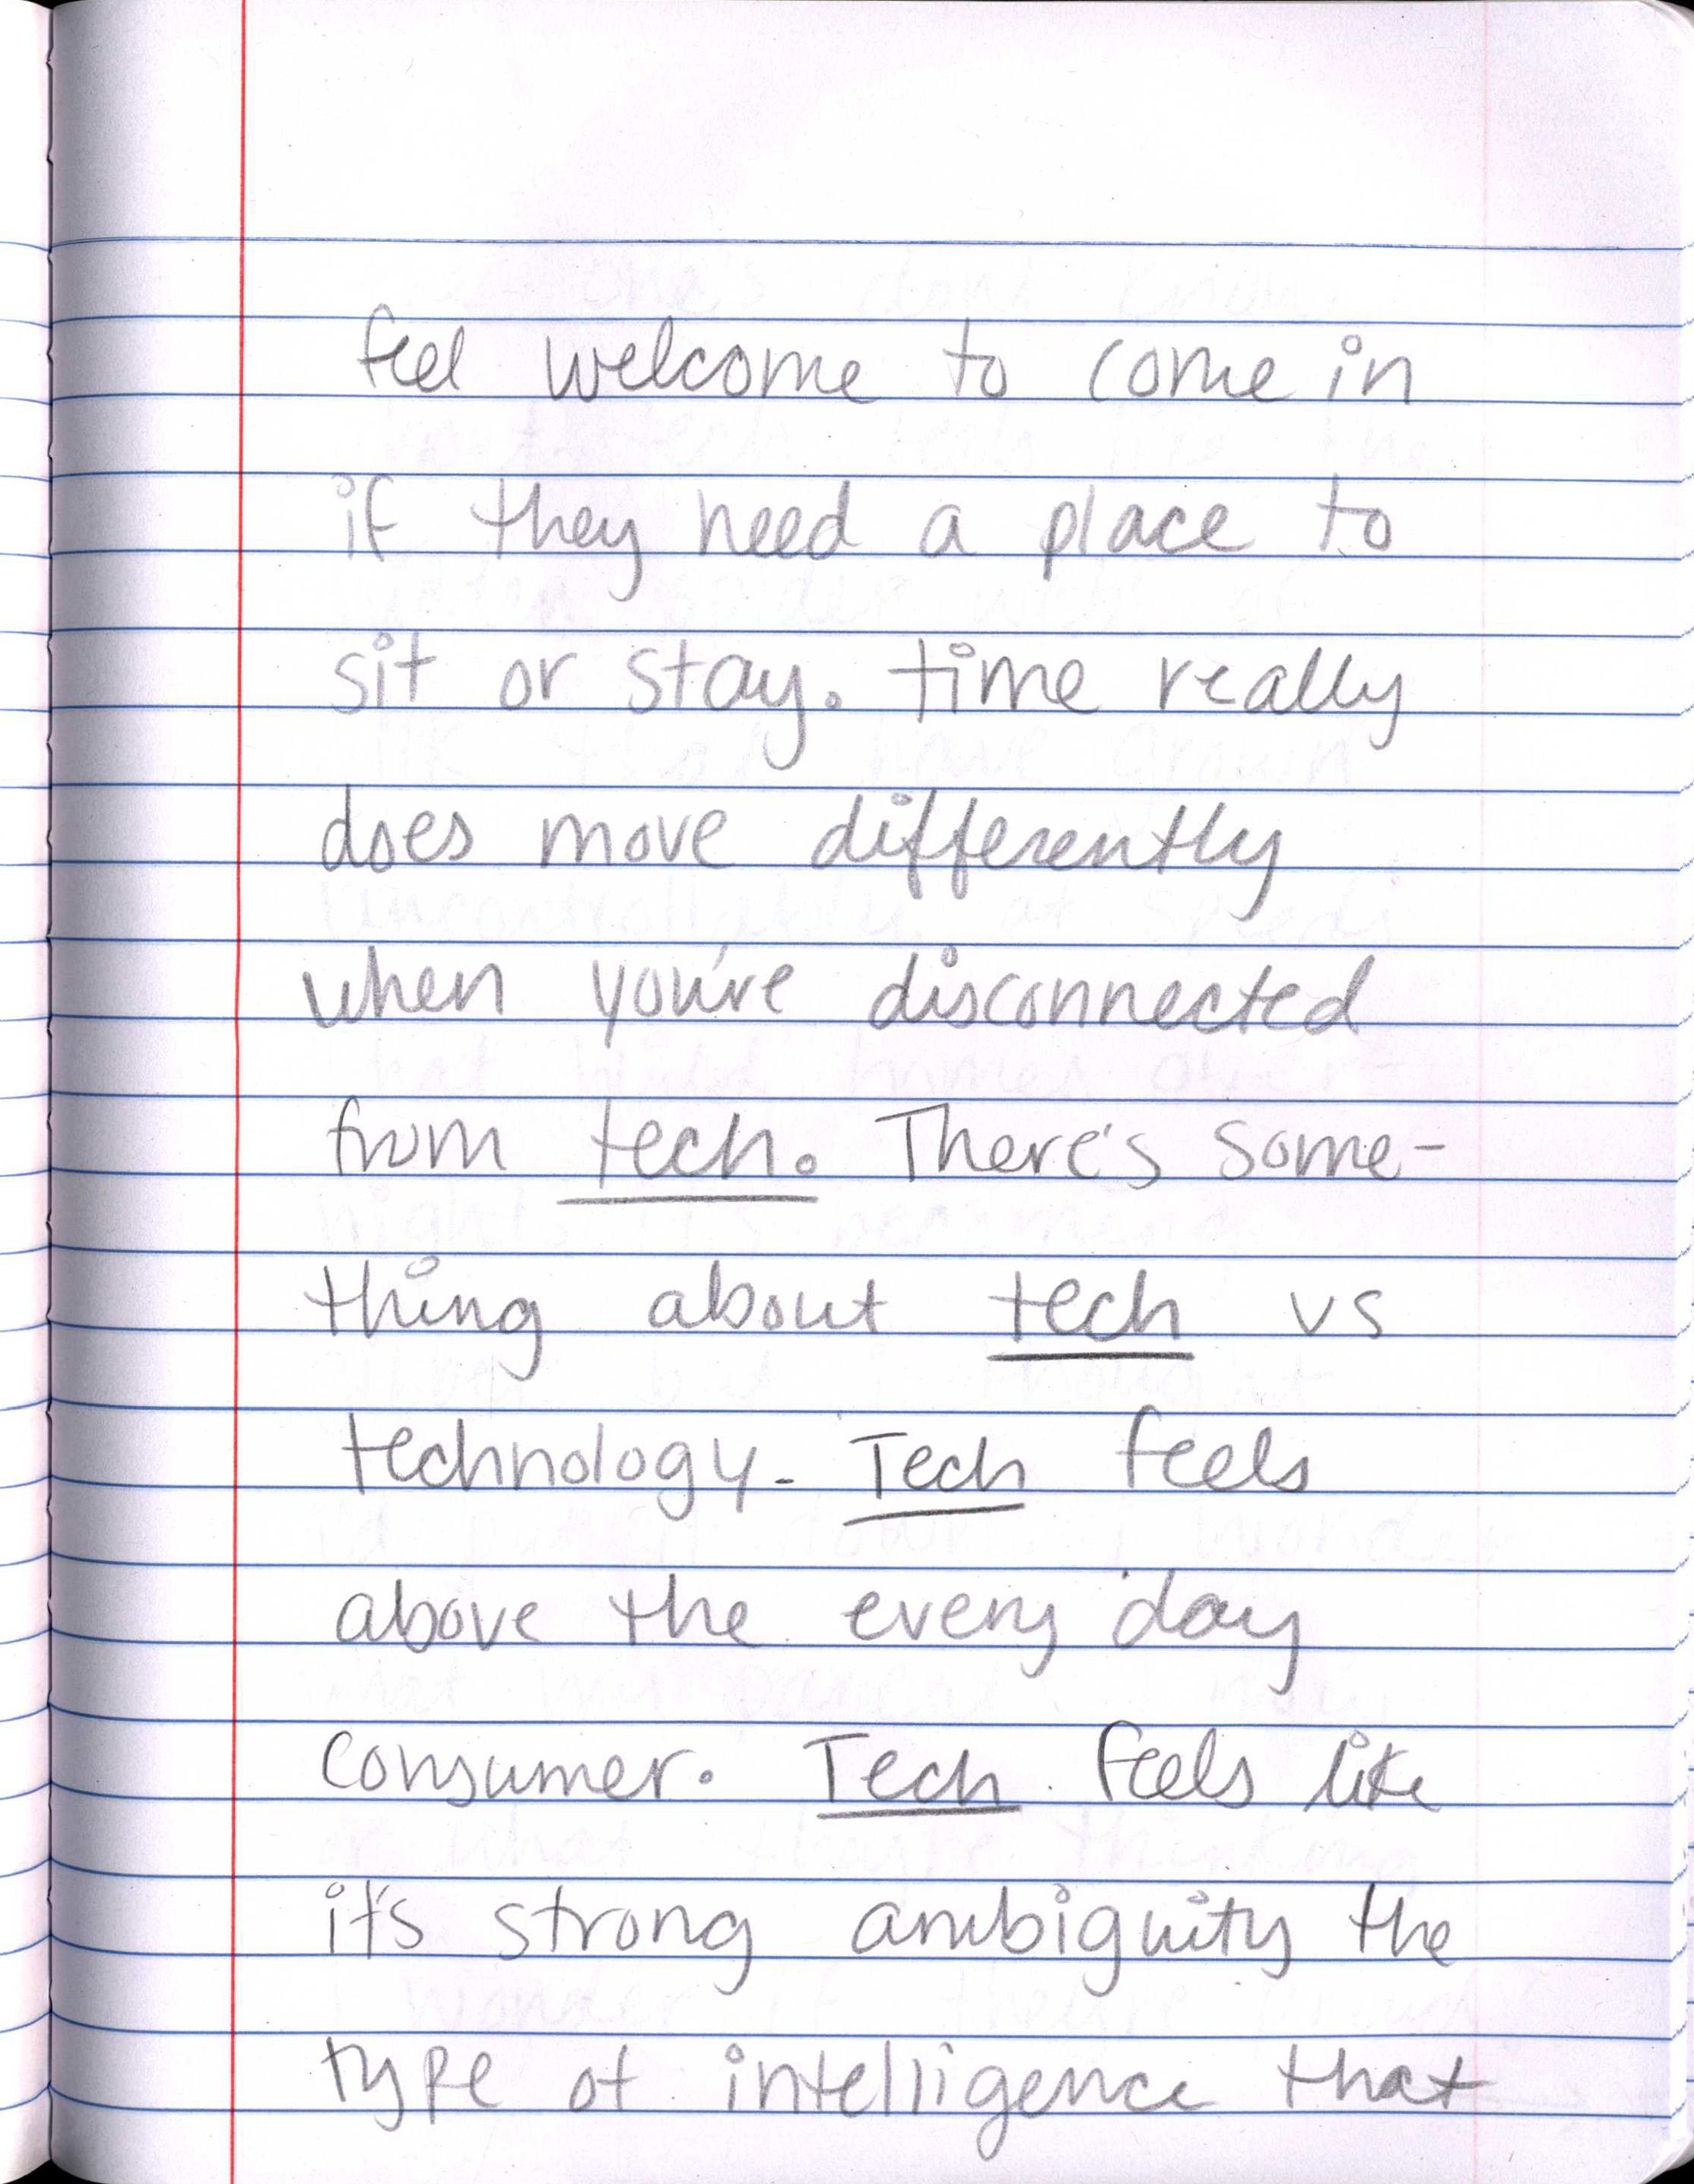 feel welcome to come in
if they need a place to
sit or stay. time really
does move differently
when you're disconnected
from tech. There's some-
thing about tech vs
technology. Tech feels
above the every day
consumer. Tech feels like
it's strong ambiguity the
type of intelligence that